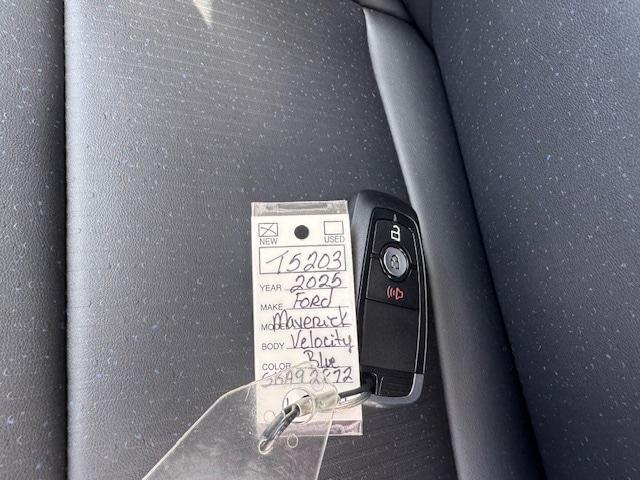 NEW USED
T5203
YEAR 2025
MAKE Ford
MODEL Maverick
BODY Velocity
COLOR Blue
SBA92872